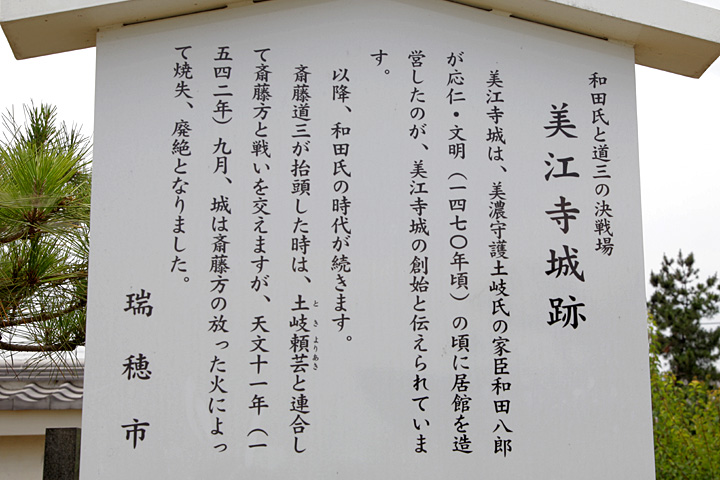 和田氏と道三の決戦場
美江寺城跡
美江寺城は、美濃守護土岐氏の家臣和田八郎
が応仁・文明（一四七〇年頃）の頃に居館を造
営したのが、美江寺城の創始と伝えられていま
す。
以降、和田氏の時代が続きます。
斎藤道三が抬頭した時は、土岐頼芸と連合し
ときよりあき
て斎藤方と戦いを交えますが、天文十一年（一
五四二年）九月、城は斎藤方の放った火によっ
て焼失、廃絶となりました。
瑞穂市